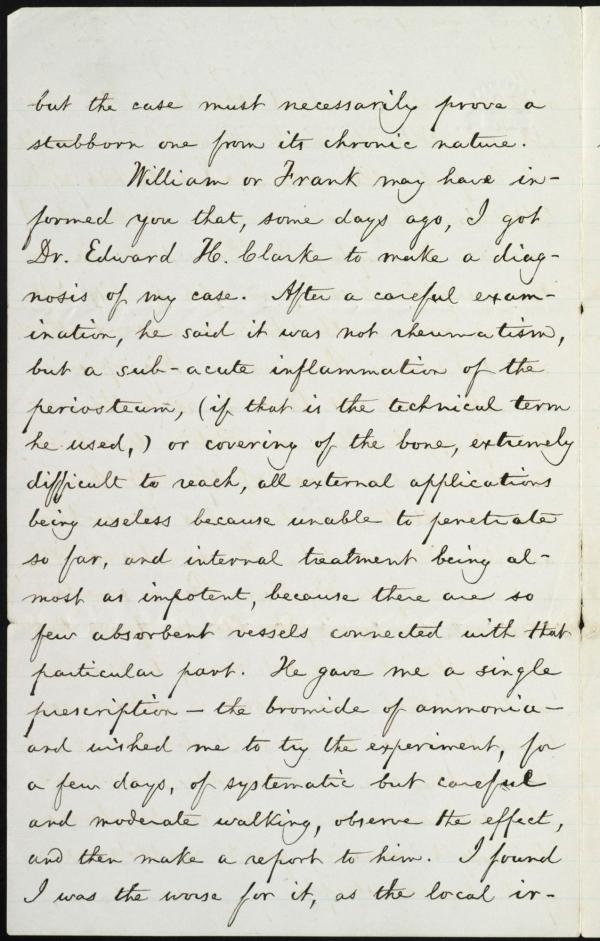 but the case must necessarily prove a
stubborn one from its chronic nature.
William or Frank may have in-
formed you that, some days ago, I got
Dr. Edward H. Clarke to make a diag-
nosis of my case. After a careful exam-
ination, he said it was not rheumatism,
but a sub-acute inflammation of the
periosteum, (if that is the technical term
he used,) or covering of the bone, extremely
difficult to reach, all external applications
being useless because unable to penetrate
so far, and internal treatment being al-
most as impotent, because there are so
few absorbent vessels connected with that
particular part. He gave me a single
prescription — the bromide of ammonia —
and wished me to try the experiment, for
a few days, of systematic but careful
and moderate walking, observe the effect,
and then make a report to him. I found
I was the worse for it, as the local ir-